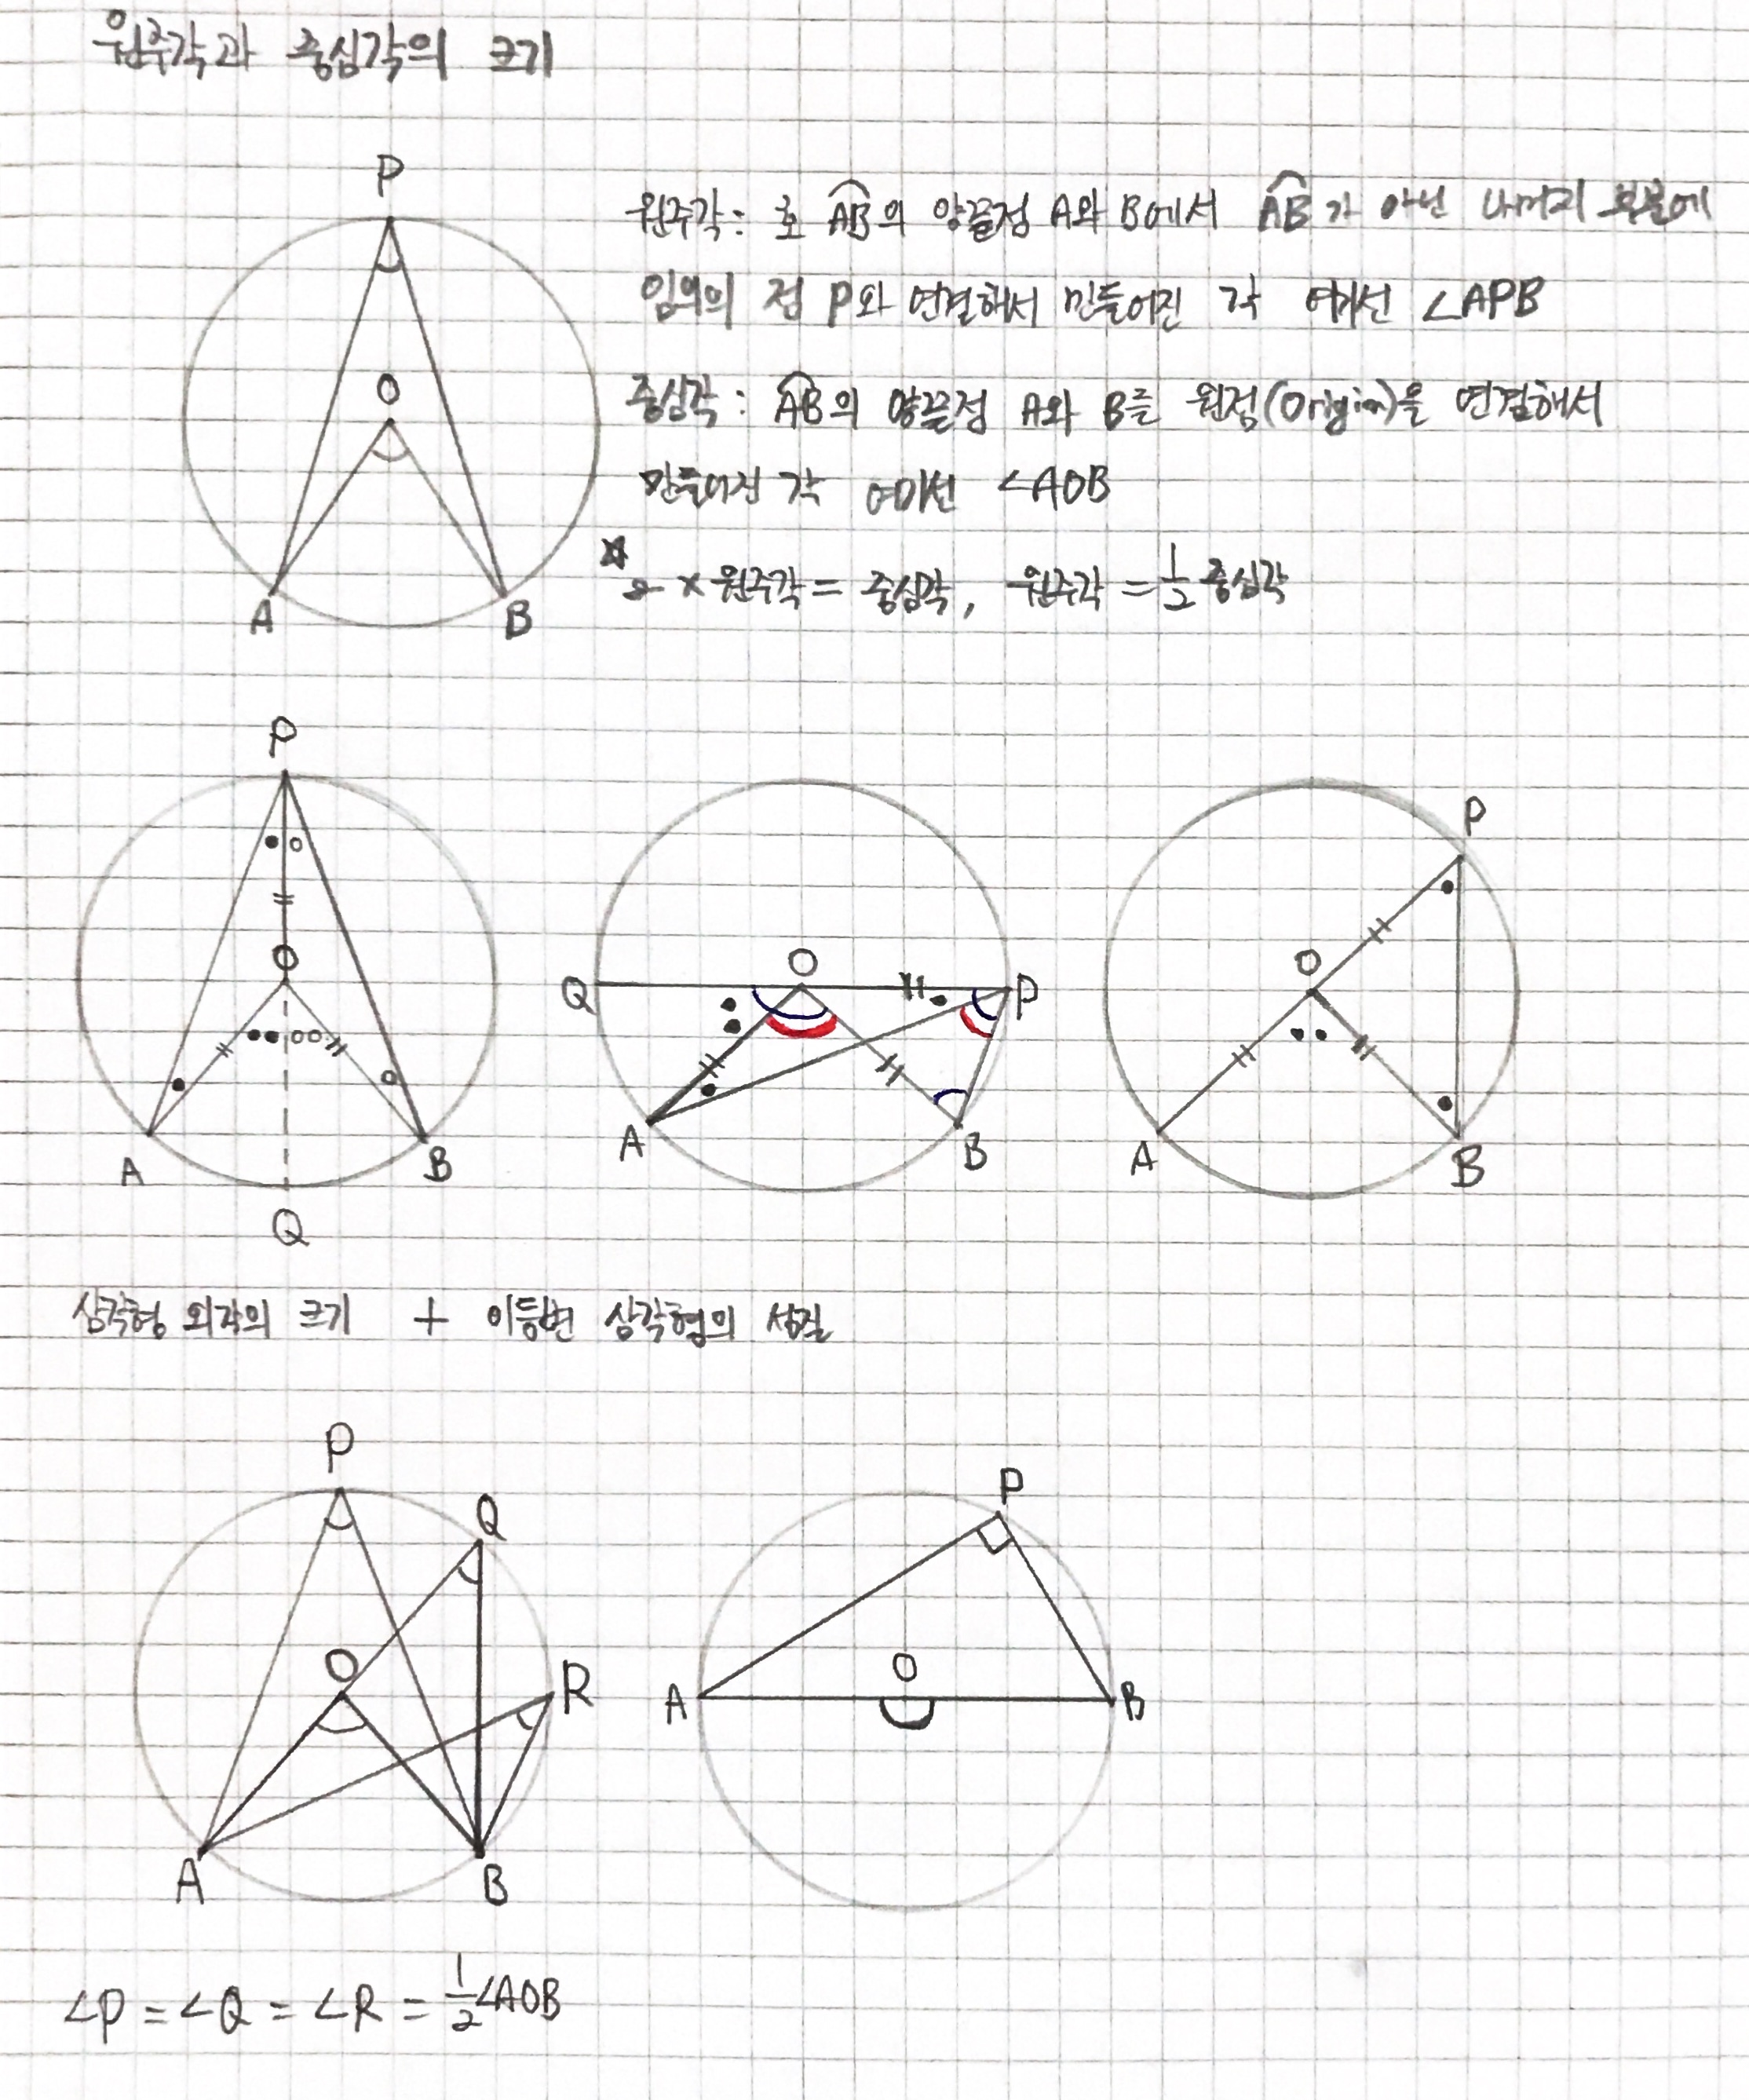 원주각과 중심각의 크기
P
원주각: 호 AB의 양끝점 A와 B에서 AB가 아닌 나머지 부분에
임의의 점 P와 연결해서 만들어진 각 여기선 ∠APB
O
중심각: AB의 양끝점 A와 B를 원점(Origin)을 연결해서
만들어진 각 여기선 ∠AOB
☆ 2 × 원주각 = 중심각, 원주각 = 1/2 중심각
A B
P
P
O O O
Q P
A B A B A B
Q
삼각형 외각의 크기 + 이등변 삼각형의 성질
P
P
Q
O R A O B
A B
∠P = ∠Q = ∠R = 1/2∠AOB